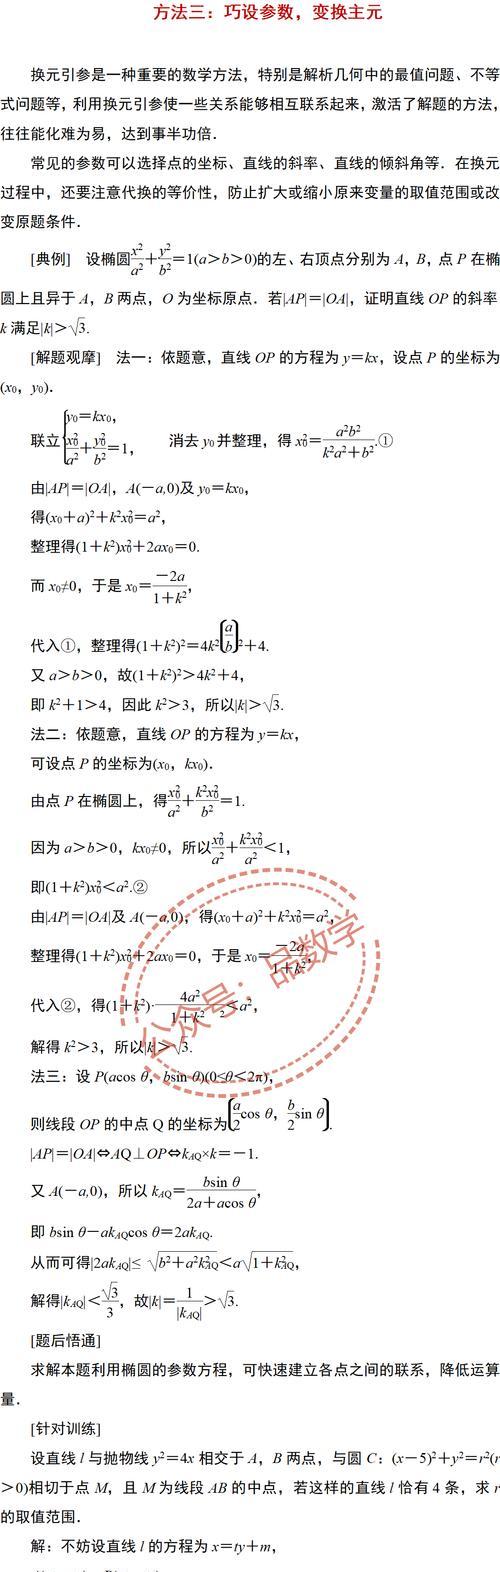 方法三：巧设参数，变换主元
换元引参是一种重要的数学方法，特别是解析几何中的最值问题、不等
式问题等，利用换元引参使一些关系能够相互联系起来，激活了解题的方法，
往往能化难为易，达到事半功倍．
常见的参数可以选择点的坐标、直线的斜率、直线的倾斜角等．在换元
过程中，还要注意代换的等价性，防止扩大或缩小原来变量的取值范围或改
变原题条件．
[典例]　设椭圆x²/a²+y²/b²=1(a>b>0)的左、右顶点分别为 A，B，点 P 在椭
圆上且异于 A，B 两点，O 为坐标原点．若|AP|=|OA|，证明直线 OP 的斜率
k 满足|k|>√3.
[解题观摩]　法一：依题意，直线 OP 的方程为 y=kx，设点 P 的坐标为
(x₀，y₀)．
联立{y₀=kx₀， x₀²/a²+y₀²/b²=1，　消去 y₀ 并整理，得 x₀²=a²b²/(k²a²+b²).①
由|AP|=|OA|，A(-a,0)及 y₀=kx₀，
得(x₀+a)²+k²x₀²=a²，
整理得(1+k²)x₀²+2ax₀=0.
而 x₀≠0，于是 x₀=-2a/(1+k²)，
代入①，整理得(1+k²)²=4k²(a/b)²+4.
又 a>b>0，故(1+k²)²>4k²+4，
即 k²+1>4，因此 k²>3，所以|k|>√3.
法二：依题意，直线 OP 的方程为 y=kx，
可设点 P 的坐标为(x₀，kx₀)．
由点 P 在椭圆上，得x₀²/a²+k²x₀²/b²=1.
因为 a>b>0，kx₀≠0，所以x₀²/a²+k²x₀²/a²<1，
即(1+k²)x₀²<a².②
由|AP|=|OA|及 A(-a,0)，得(x₀+a)²+k²x₀²=a²，
整理得(1+k²)x₀²+2ax₀=0，于是 x₀=-2a/(1+k²)，
代入②，得(1+k²)·4a²/(1+k²)²<a²，
解得 k²>3，所以|k|>√3.
法三：设 P(acos θ，bsin θ)(0≤θ<2π)，
则线段 OP 的中点 Q 的坐标为(a/2cos θ，b/2sin θ).
|AP|=|OA|⇔AQ⊥OP⇔k_AQ×k=-1.
又 A(-a,0)，所以 k_AQ=bsin θ/(2a+acos θ)，
即 bsin θ-ak_AQcos θ=2ak_AQ.
从而可得|2ak_AQ|≤√(b²+a²k_AQ²)<a√(1+k_AQ²)，
解得|k_AQ|<√3/3，故|k|=1/|k_AQ|>√3.
[题后悟通]
求解本题利用椭圆的参数方程，可快速建立各点之间的联系，降低运算
量．
[针对训练]
设直线 l 与抛物线 y²=4x 相交于 A，B 两点，与圆 C：(x-5)²+y²=r²(r
>0)相切于点 M，且 M 为线段 AB 的中点，若这样的直线 l 恰有 4 条，求 r
的取值范围．
解：不妨设直线 l 的方程为 x=ty+m，
公众号：品数学